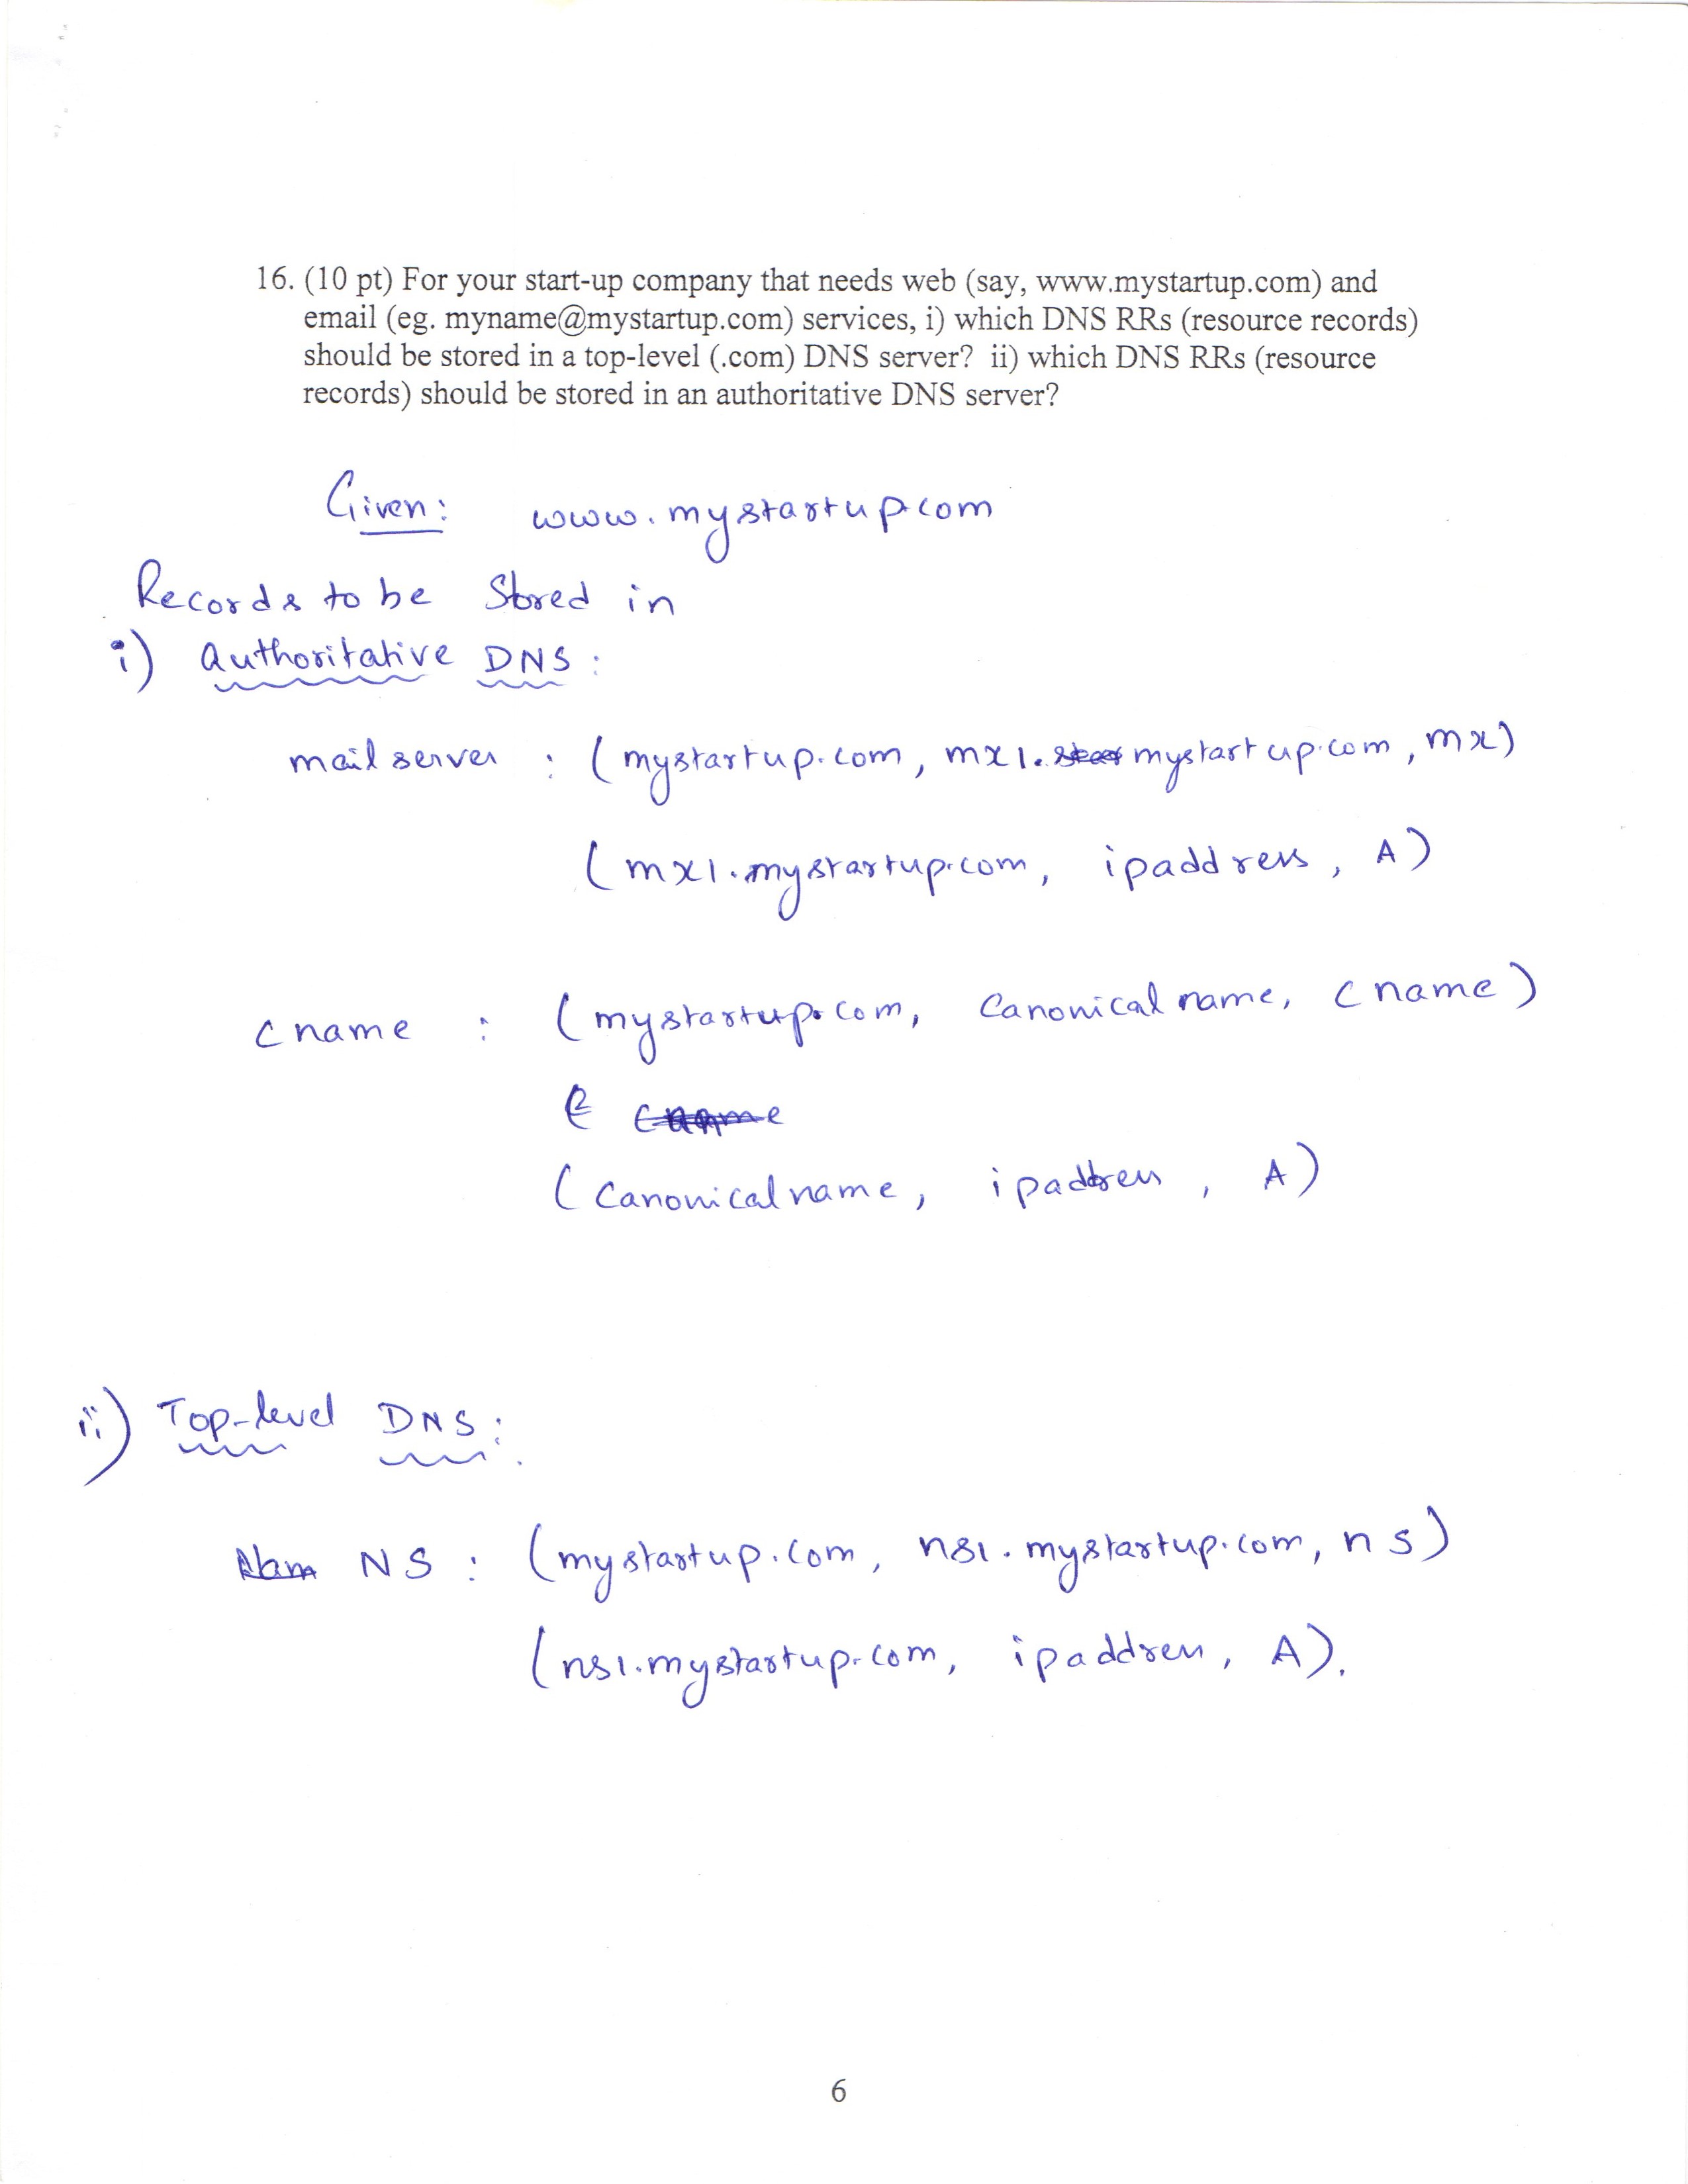 16. (10 pt) For your start-up company that needs web (say, www.mystartup.com) and
email (eg. myname@mystartup.com) services, i) which DNS RRs (resource records)
should be stored in a top-level (.com) DNS server? ii) which DNS RRs (resource
records) should be stored in an authoritative DNS server?
Given: www.mystartup.com
Records to be Stored in
i) Authoritative DNS:
mail server : (mystartup.com, mx1.mystartup.com, mx)
(mx1.mystartup.com, ipaddress, A)
cname : (mystartup.com, Canonical name, cname)
cname
(Canonical name, ipaddress, A)
ii) Top-level DNS:
Nam NS : (mystartup.com, ns1.mystartup.com, ns)
(ns1.mystartup.com, ipaddress, A).
6